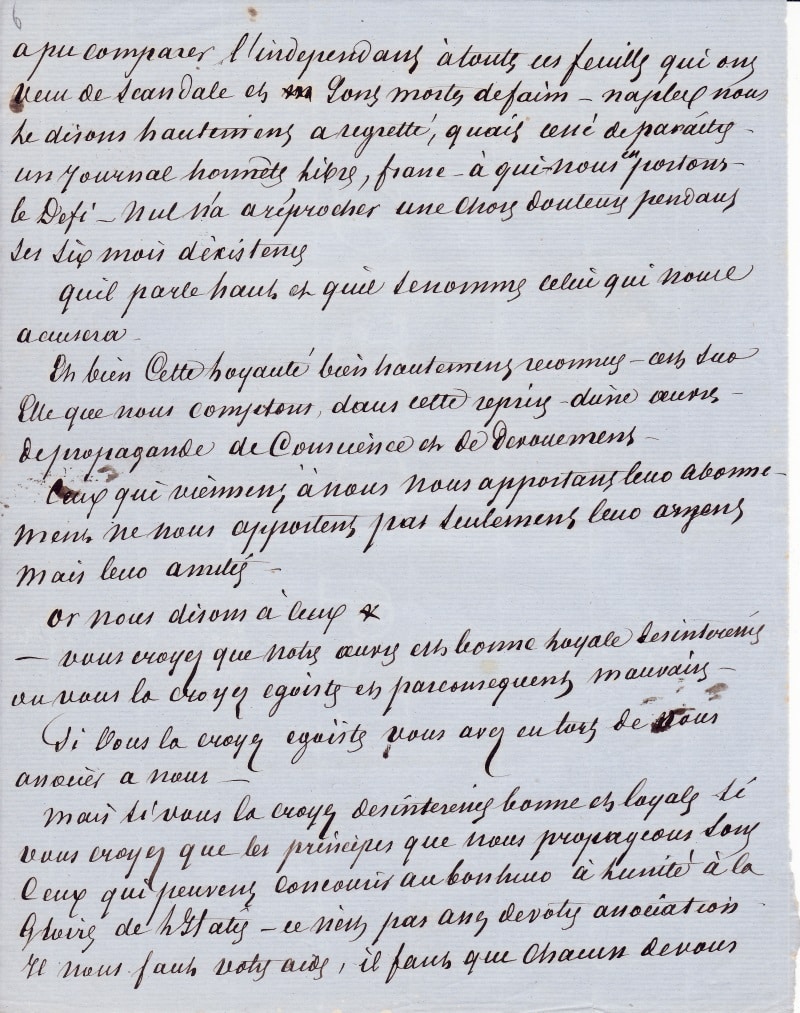 6
a pu comparer l'independant à toutes ces feuilles qui ont
vecu de scandale et sont mortes de faim – naples nous
le disons hautement a regretté, quait cessé de paraître –
un journal honnête libre, franc – à qui nous en portons
le Defi – nul n'a a réprocher une chose douteuse pendant
ses six mois déxistence
quil parle haut et quil se nomme celui qui nous
acusera –
Et bien Cette loyauté bien hautement reconnue – cest sur
Elle que nous comptons, dans cette reprise – dûne œuvre –
de propagande de Conscience et de Devouement –
Ceux qui viennent à nous nous apportant leur abonne-
ment ne nous apportent pas seulement leur argent
mais leur amitié –
or nous disons à ceux
– vous croyez que notre œuvre est bonne loyale desinteressée
ou vous la croyez egoïste et parconsequent mauvaise –
Si vous la croyez egoïste vous avez eu tort de vous
associer a nous –
mais si vous la croyez desinteressée bonne et loyale si
vous croyez que les principes que nous propageons sont
Ceux qui peuvent concourir au bonheur à lunité à la
Gloire de lItalie – ce nest pas assez de votre association –
Il nous faut votre aide, il faut que chacun de vous